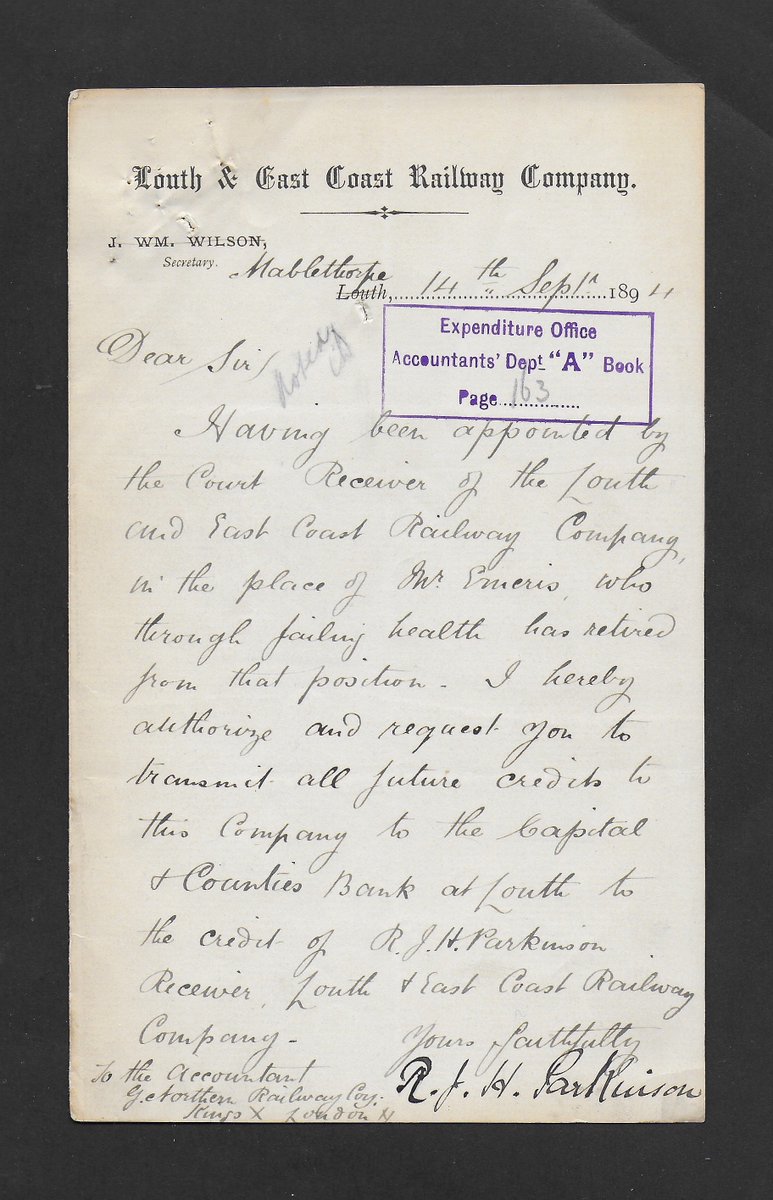 Louth & East Coast Railway Company.
J. WM. WILSON,
Secretary.
Mablethorpe
Louth, 14th Sepr. 1894
Expenditure Office
Accountants' Dept "A" Book
Page 163
Dear Sir/
Having been appointed by
the Court Receiver of the Louth
and East Coast Railway Company,
in the place of Mr. Emeris, who
through failing health has retired
from that position - I hereby
authorize and request you to
transmit all future credits to
this Company to the Capital
& Counties Bank at Louth to
the credit of R.J.H. Parkinson
Receiver, Louth & East Coast Railway
Company -
Yours faithfully
R. J. H. Parkinson
To the Accountant
G. Northern Railway Coy.
Kings X London N